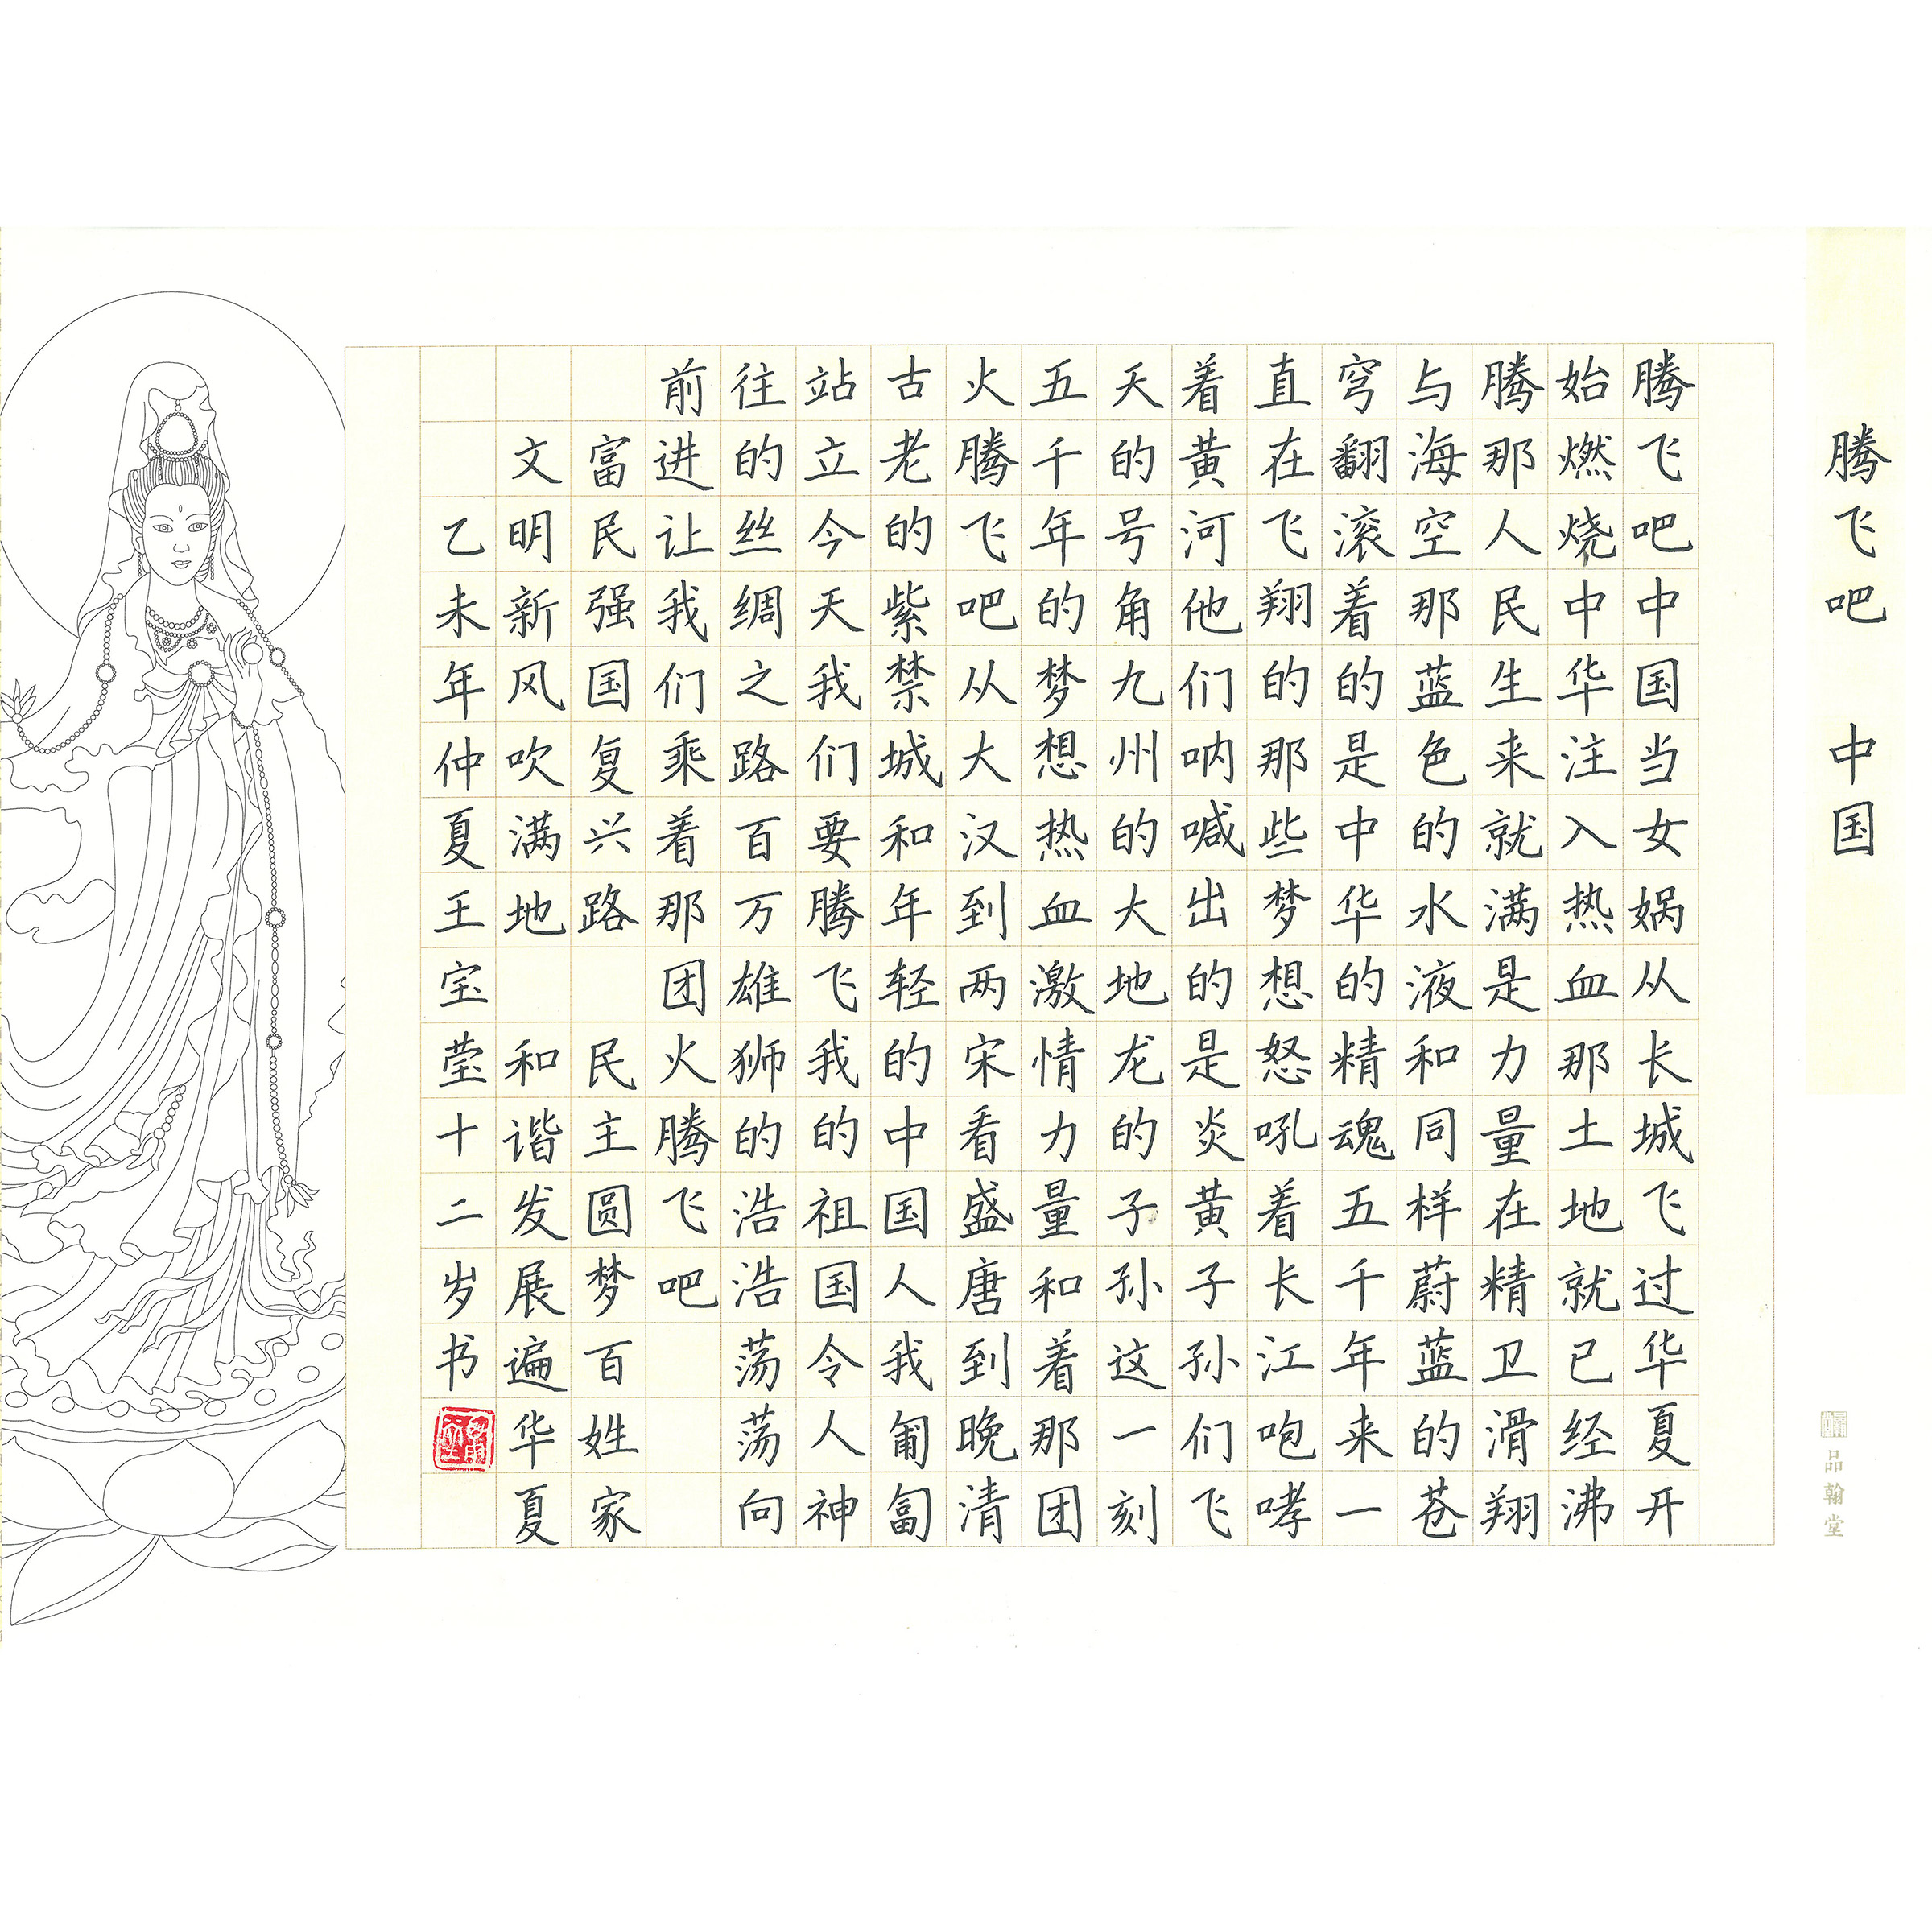 腾飞吧 中国
腾飞吧中国当女娲从长城飞过华夏开
始燃烧中华注入热血那土地就已经沸
腾那人民生来就满是力量在精卫滑翔
与海空那蓝色的水液和同样蔚蓝的苍
穹翻滚着的是中华的精魂五千年来一
直在飞翔的那些梦想怒吼着长江咆哮
着黄河他们呐喊出的是炎黄子孙们飞
天的号角九州的大地龙的子孙这一刻
五千年的梦想热血激情力量和着那团
火腾飞吧从大汉到两宋看盛唐到晚清
古老的紫禁城和年轻的中国人我匍匐
站立今天我们要腾飞我的祖国令人神
往的丝绸之路百万雄狮的浩浩荡荡向
前进让我们乘着那团火腾飞吧
富民强国复兴路 民主圆梦百姓家
文明新风吹满地 和谐发展遍华夏
乙未年仲夏王宝莹十二岁书
品翰堂